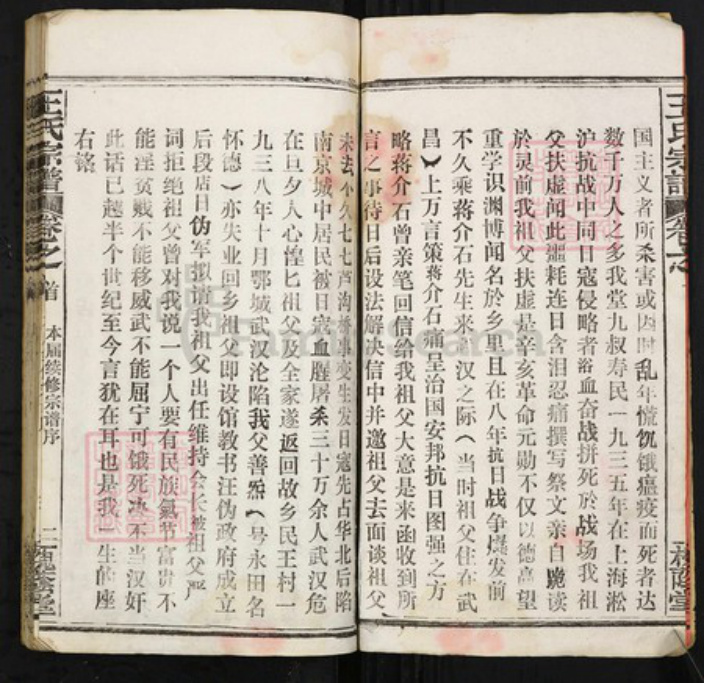 国主义者所杀害或因时乱年慌饥饿瘟疫而死者达
数千万人之多我堂九叔寿民一九三五年在上海淞
沪抗战中同日寇侵略者浴血奋战拼死於战场我祖
父扶虚闻此噩耗连日含泪忍痛撰写祭文亲自跪读
於灵前我祖父扶虚是辛亥革命元勋不仅以德高望
重学识渊博闻名於乡里且在八年抗日战争爆发前
不久乘蒋介石先生来武汉之际（当时祖父住在武
昌）上万言策蒋介石痛呈治国安邦抗日图强之方
略蒋介石曾亲笔回信给我祖父大意是来函收到所
言之事待日后设法解决信中并邀祖父去面谈祖父
未去不久七七芦沟桥事变生发日寇先占华北后陷
南京城中居民被日寇血腥屠杀三十万余人武汉危
在旦夕人心惶匕祖父及全家遂返回故乡民王村一
九三八年十月鄂城武汉沦陷我父善炁（号永田名
怀德）亦失业回乡祖父即设馆教书汪伪政府成立
后段店日伪军拟请我祖父出任维持会长被祖父严
词拒绝祖父曾对我说一个人要有民族氣节富贵不
能淫贫贱不能移威武不能屈宁可饿死决不当汉奸
此话已越半个世纪至今言犹在耳也是我一生的座
右铭
王氏宗譜
卷之一首
本届续修宗谱序
二
槐蔭堂
王氏宗譜
卷之
槐蔭堂
FamilySearch